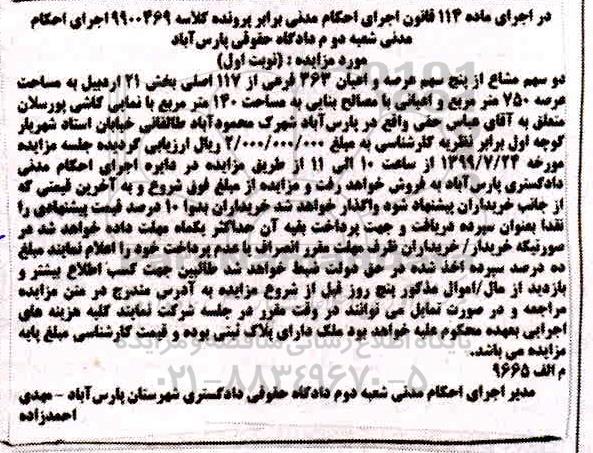 در اجرای ماده ۱۱۴ قانون اجرای احکام مدنی برابر پرونده کلاسه ۹۹۰۰۴۶۹ اجرای احکام
مدنی شعبه دوم دادگاه حقوقی پارس‌آباد
مورد مزایده : (نوبت اول)
دو سهم مشاع از پنج سهم عرصه و اعیان ۳۶۳ فرعی از ۱۱۷ اصلی بخش ۲۱ اردبیل به مساحت
عرصه ۷۵۰ متر مربع و اعیانی با مصالح بنایی به مساحت ۱۴۰ متر مربع با نمایی کاشی پورسلان
متعلق به آقای عباس حقی واقع در پارس‌آباد شهرک محمودآباد طالقانی خیابان استاد شهریار
کوچه اول برابر نظریه کارشناسی به مبلغ ۲/۰۰۰/۰۰۰/۰۰۰ ریال ارزیابی گردیده جلسه مزایده
مورخه ۱۳۹۹/۷/۲۴ از ساعت ۱۰ الی ۱۱ از طریق مزایده در دایره اجرای احکام مدنی
دادگستری پارس‌آباد به فروش خواهد رفت و مزایده از مبلغ فوق شروع و به آخرین قیمتی که
از جانب خریداران پیشنهاد شود واگذار خواهد شد خریداران بدوا ۱۰ درصد قیمت پیشنهادی را
نقدا بعنوان سپرده دریافت و جهت پرداخت بقیه آن حداکثر یکماه مهلت داده خواهد شد در
صورتیکه خریدار/ خریداران ظرف مهلت مقرر انصراف یا عدم پرداخت خود را اعلام نمایند مبلغ
ده درصد سپرده اخذ شده در حق دولت ضبط خواهد شد طالبین جهت کسب اطلاع بیشتر و
بازدید از مال/اموال مذکور پنج روز قبل از شروع مزایده به آدرس مندرج در متن مزایده
مراجعه و در صورت تمایل می توانند در وقت مقرر در جلسه شرکت نمایند کلیه هزینه های
اجرایی بعهده محکوم علیه خواهد بود ملک دارای پلاک ثبتی بوده و قیمت کارشناسی مبلغ پایه
مزایده می باشد.
م الف ۹۶۶۵
مدیر اجرای احکام مدنی شعبه دوم دادگاه حقوقی دادگستری شهرستان پارس‌آباد - مهدی
احمدزاده
پایگاه اطلاع رسانی مناقصه و مزایده
۰۲۱-۸۸۳۴۹۶۷۰-۵